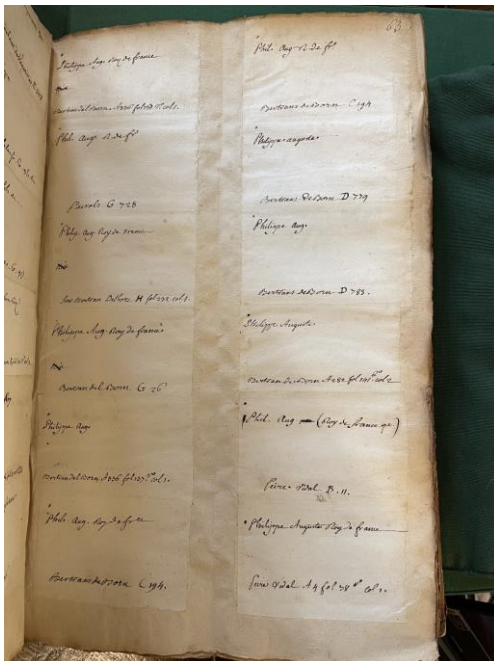 63
Philippe Aug. Roy de france
Bertran del Born. A 236 fol col 1.
Phil. Aug. R. de fr
G 728
Phlip. Aug. Roy de
Bertran H fol 232 col 1.
Philippe Aug. Roy de france
Bertran del Born G 26
Philippe Aug.
Bertran del Born A 236 fol 127 col 1.
Phil. Aug. Roy de france
Bertrans de Born C 194.
Phil. Aug. R. de fr
Bertrans de Born C 194
Philippe auguste
Bertrans de Born D 779
Philippe Aug.
Bertrans de Born D 783.
Philippe Auguste
Bertran de Born A 282 fol col 2
Phil. Aug (Roy de france qe.)
Peire Vidal B. 11.
Philippe Auguste Roy de france
Peire Vidal A 4 fol 38 col 2.